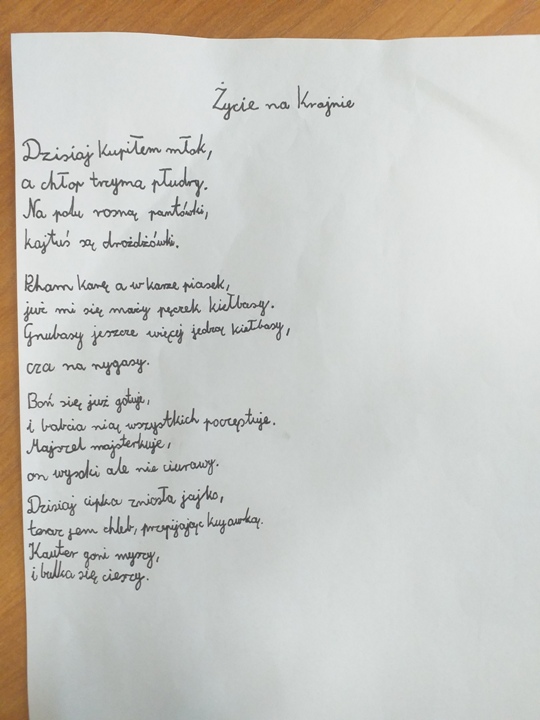 Życie na Krajnie
Dzisiaj kupiłem młok,
a chłop trzyma płudry.
Na polu rosną pantówki,
kajtuś są drożdżówki.
Pcham karę a w karze piasek,
już mi się marzy pęczek kiełbasy.
Gnubasy jeszcze więcej jedzą kiełbasy,
cza na nygasy.
Boń się już gotuje,
i babcia nią wszystkich poczęstuje.
Majszel majsterkuje,
on wysoki ale nie ciurawy.
Dzisiaj cipka zniosła jajko,
teraz jem chleb, przepijając kujawką.
Kauter goni myszy,
i bulka się cieszy.